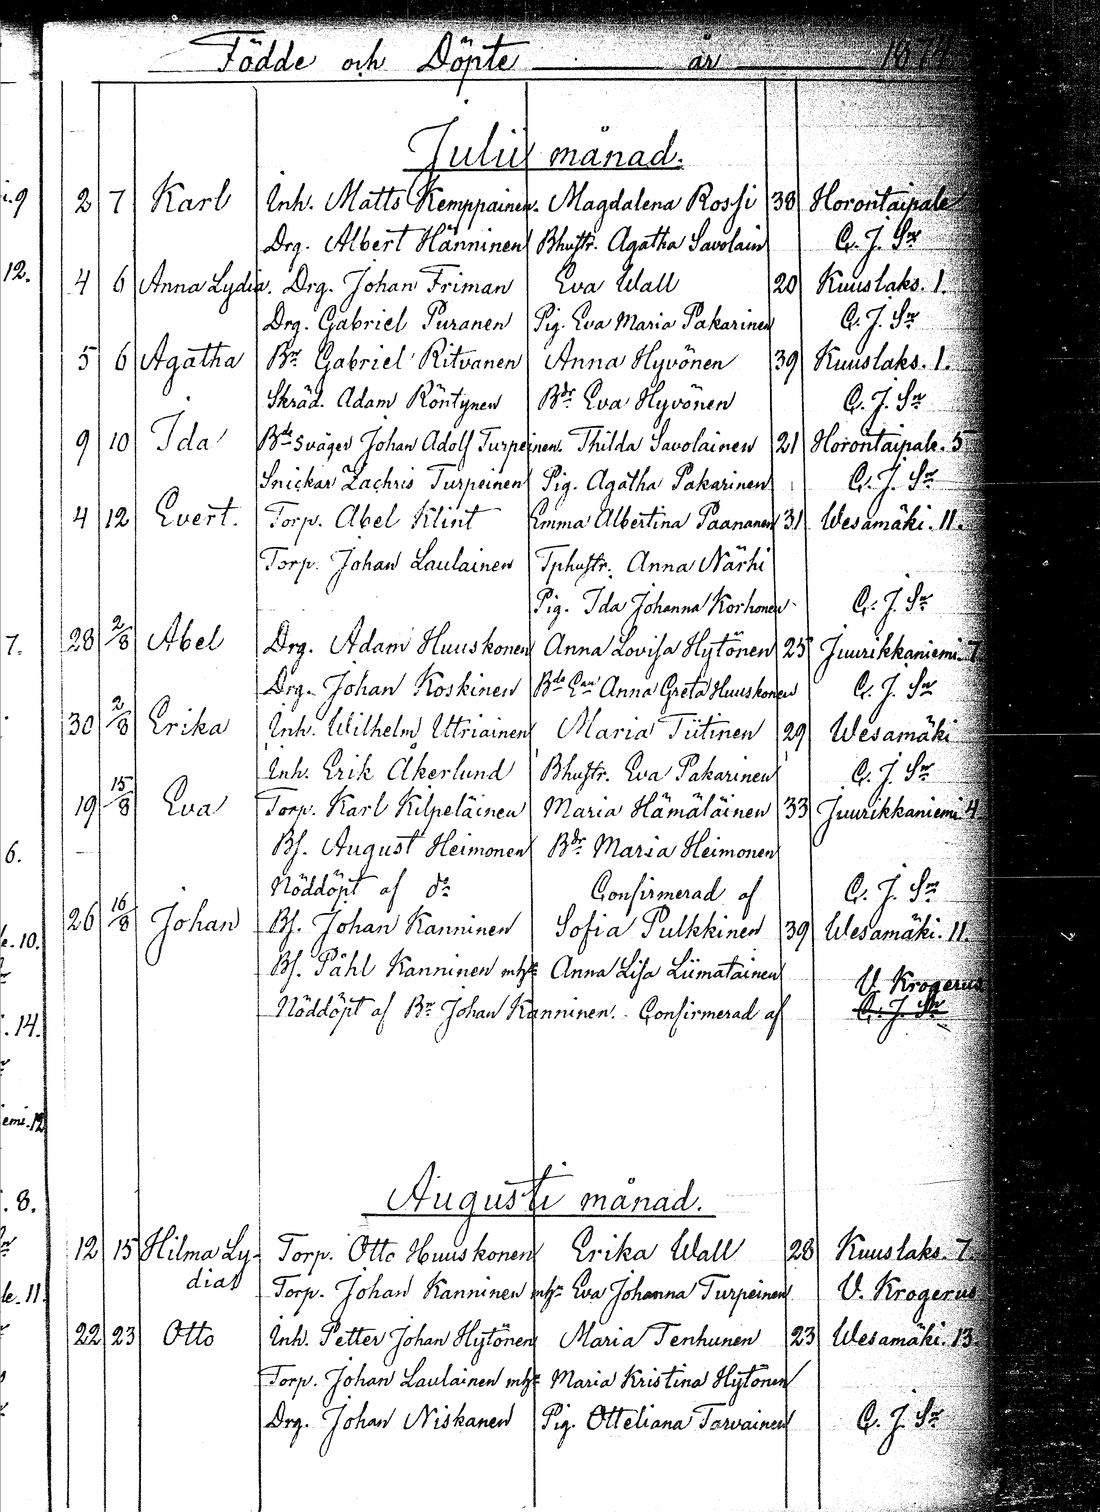 Födde och Döpte år 187
Julii månad.
2 7 Karl Inh. Matts Kemppainen. Magdalena Rossi 38 Horontaipale
Drg. Albert Hänninen Bhustr. Agatha Savolain C. J. Sn
4 6 Anna Lydia. Drg. Johan Friman Eva Wall 20 Kuuslaks. 1.
Drg. Gabriel Puranen Pig. Eva Maria Pakarinen C. J. Sn
5 6 Agatha Bn Gabriel Ritvanen Anna Hyvönen 39 Kuuslaks. 1.
Skräd. Adam Röntynen Bdr Eva Hyvönen C. J. Sn
9 10 Ida Bde svåger Johan Adolf Turpeinen. Thilda Savolainen 21 Horontaipale. 5
Snickar Zachris Turpeinen Pig. Agatha Pakarinen C. J. Sn
4 12 Evert. Torp. Abel Klint Emma Albertina Paananen 31 Wesamäki. 11.
Torp. Johan Laulainen Tphustr. Anna Närhi
Pig. Ida Johanna Korhonen C. J. Sn
28 2/8 Abel Drg. Adam Huuskonen Anna Lovisa Hytönen 25 Juurikkaniemi. 7
Drg. Johan Koskinen Bde Enn Anna Greta Huuskonen C. J. Sn
30 2/8 Erika Inh. Wilhelm Utriainen Maria Tiitinen 29 Wesamäki
Inh. Erik Åkerlund Bhustr. Eva Pakarinen C. J. Sn
19 15/8 Eva Torp. Karl Kilpeläinen Maria Hämäläinen 33 Juurikkaniemi 4
Bs. August Heimonen Bdr Maria Heimonen
Nöddöpt af do Confirmerad af C. J. Sn
26 16/8 Johan Bs. Johan Kanninen Sofia Pulkkinen 39 Wesamäki. 11.
Bs. Påhl Kanninen mhr Anna Lisa Liimatainen V. Krogerus
Nöddöpt af Bn Johan Kanninen. Confirmerad af C. J. Sn
Augusti månad.
12 15 Hilma Ly- Torp. Otto Huuskonen Erika Wall 28 Kuuslaks. 7.
dia Torp. Johan Kanninen mhr Eva Johanna Turpeinen V. Krogerus
22 23 Otto Inh. Petter Johan Hytönen Maria Tenhunen 23 Wesamäki. 13
Torp. Johan Laulainen mhr Maria Kristina Hytönen
Drg. Johan Niskanen Pig. Otteliana Tarvainen C. J. Sn
i.9
12.
7.
6.
e.10.
.14.
emi.12
.8.
le.11.